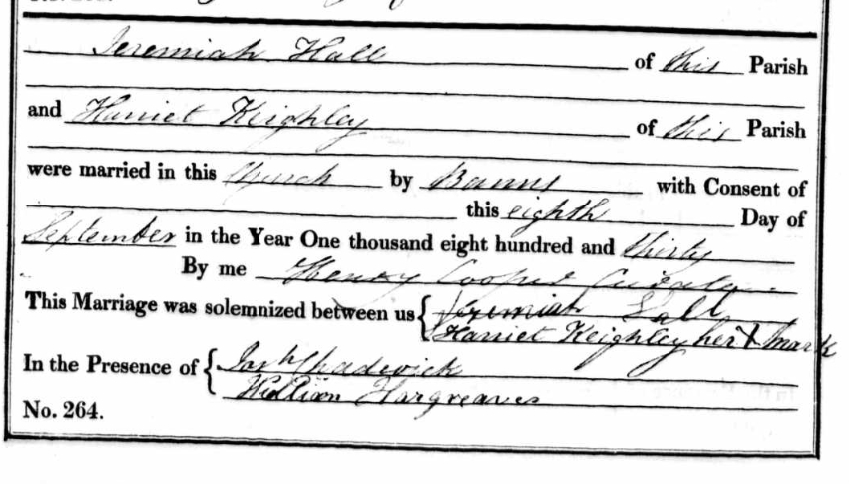 Jeremiah Hall of this Parish
and Harriet Keighley of this Parish
were married in this Church by Banns with Consent of
this eighth Day of
September in the Year One thousand eight hundred and thirty
By me Henry Cooper
This Marriage was solemnized between us { Jeremiah Hall
Harriet Keighley her X mark
In the Presence of { Josh Chadwick
William Hargreaves
No. 264.